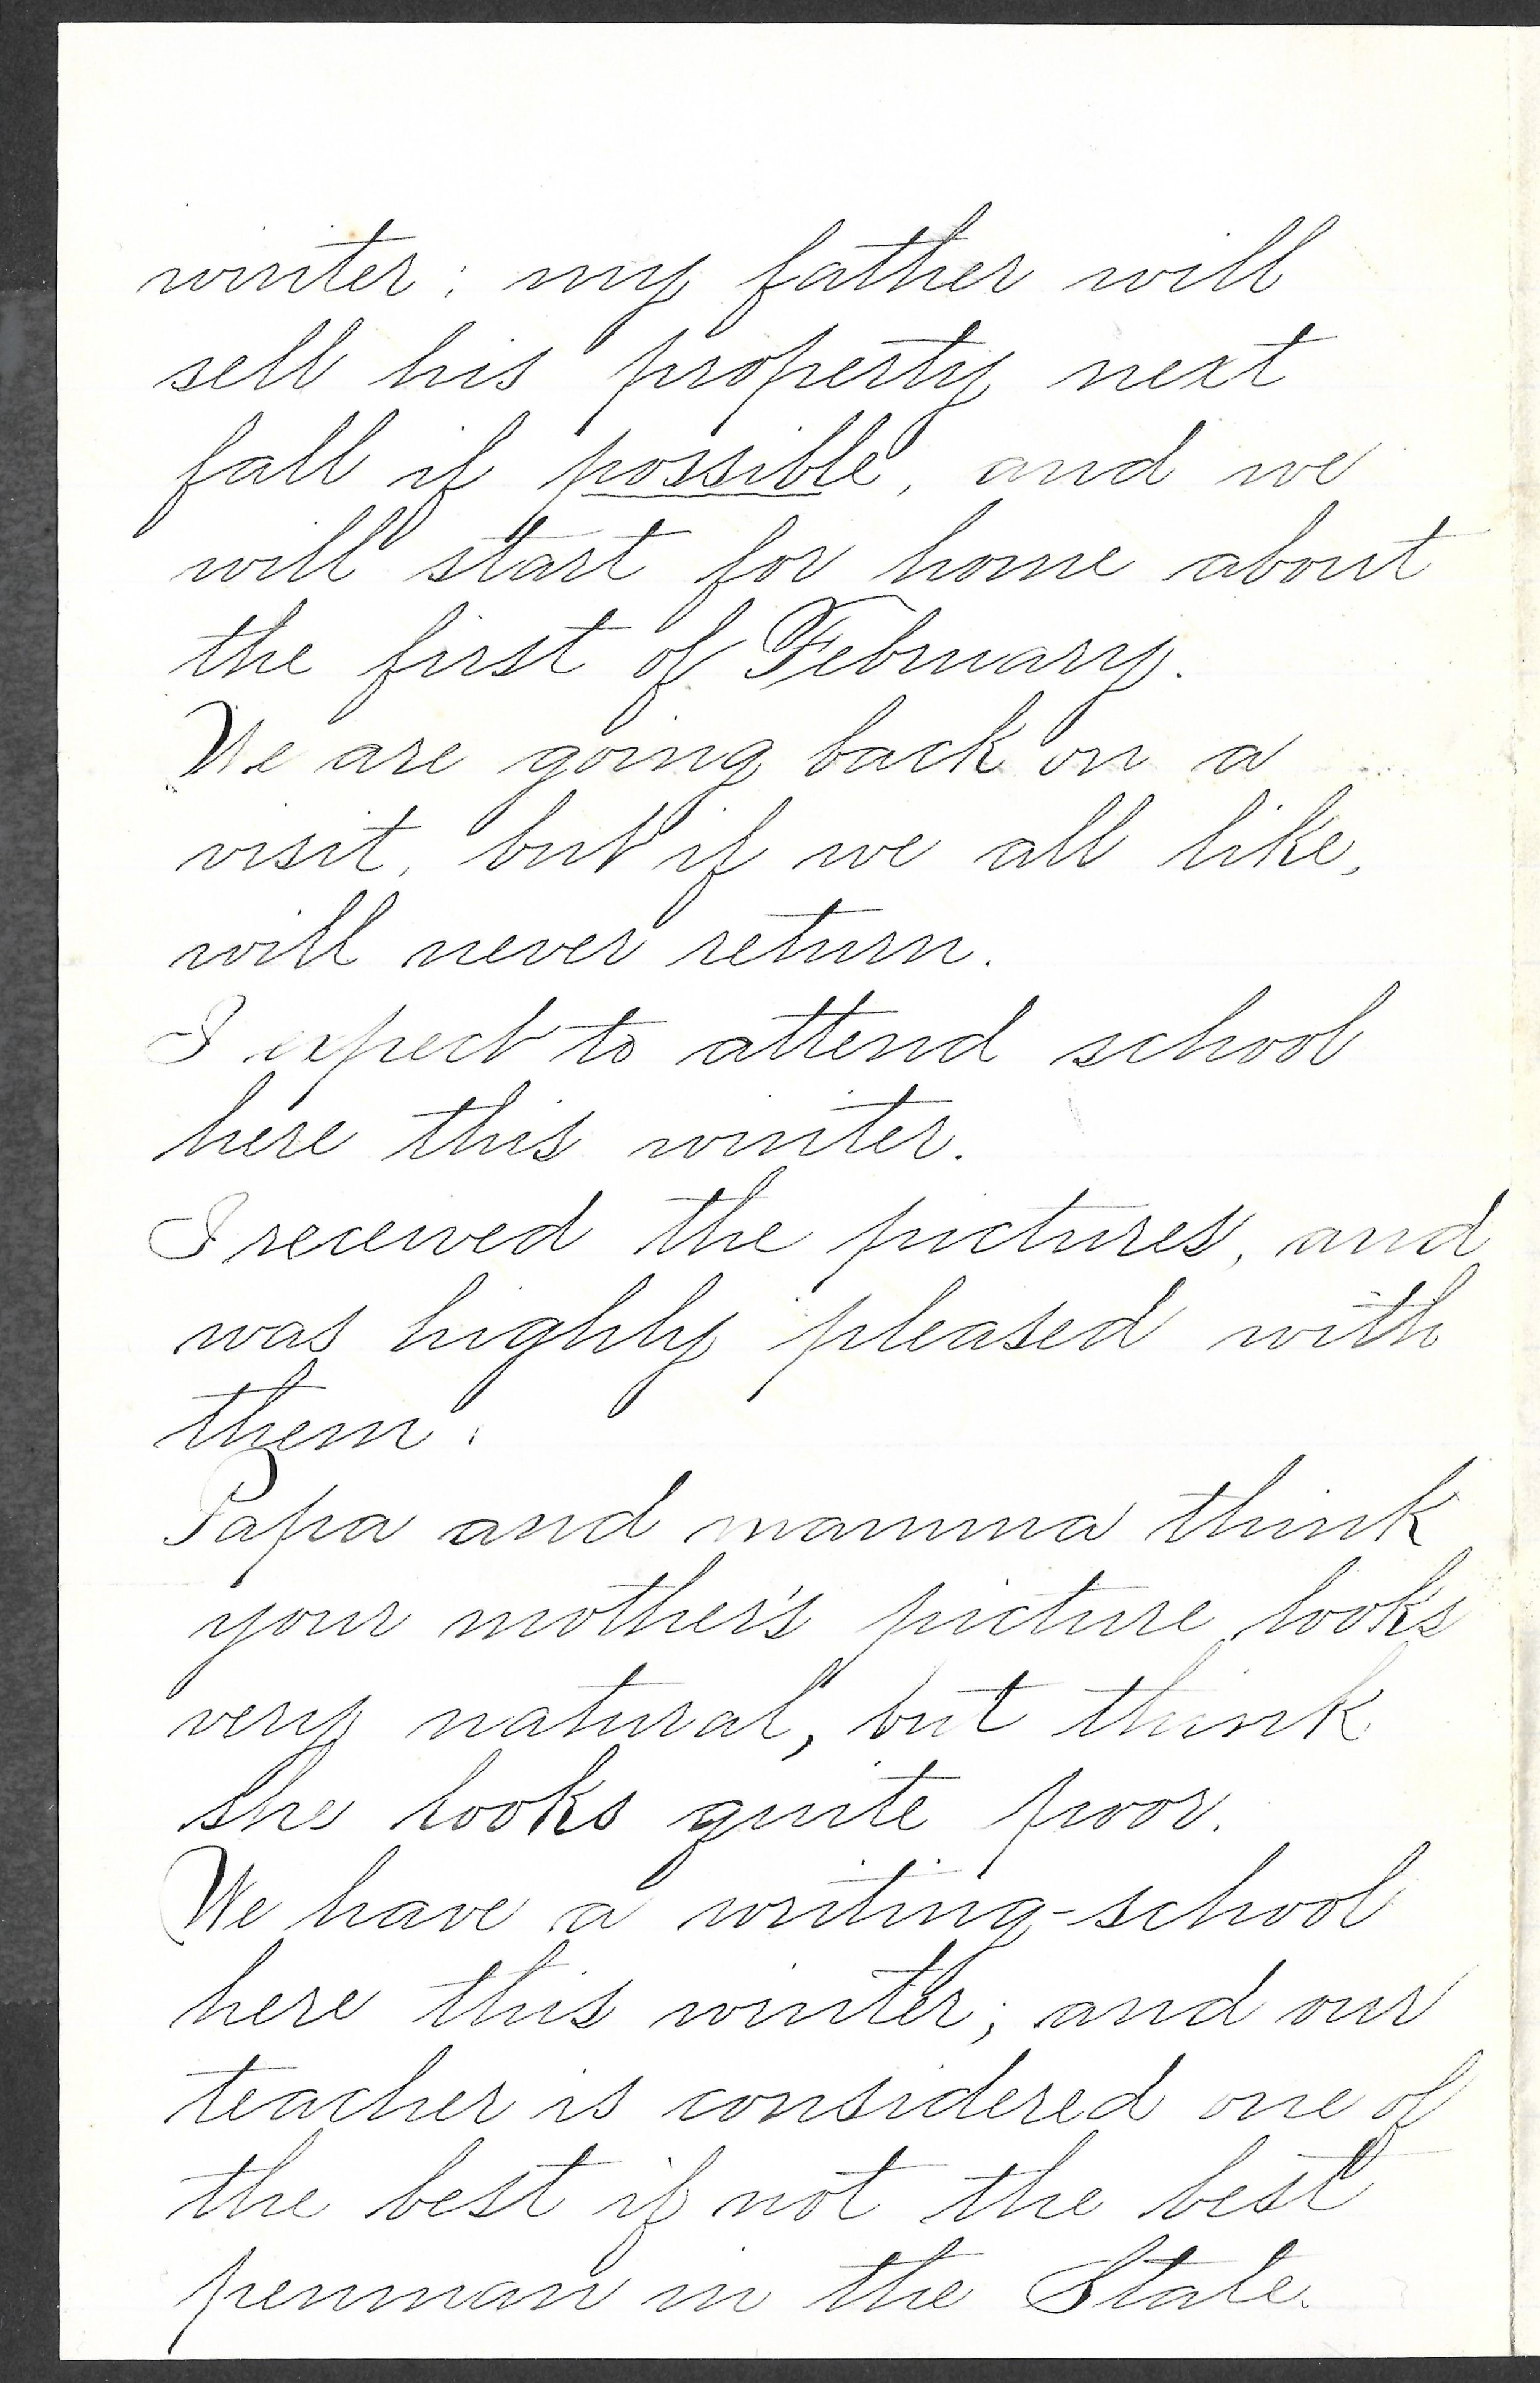 winter; my father will
sell his property next
fall if possible, and we
will start for home about
the first of February.
We are going back on a
visit, but if we all like,
will never return.
I expect to attend school
here this winter.
I received the pictures, and
was highly pleased with
them.
Papa and mamma think
your mother's picture looks
very natural, but think
she looks quite poor.
We have a writing-school
here this winter; and our
teacher is considered one of
the best if not the best
penman in the State.